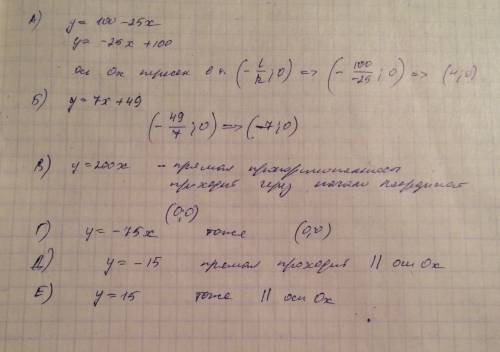 А) y = 100 - 25x
y = -25x + 100
ось Ox пересек в т. (-l/k; 0) => (-100/-25; 0) => (4; 0)
Б) y = 7x + 49
(-49/7; 0) => (-7; 0)
В) y = 200x - прямая пропорциональность
проходит через начало координат
(0;0)
Г) y = -75x тоже (0;0)
Д) y = -15 прямая проходит || оси Ox
Е) y = 15 тоже || оси Ox